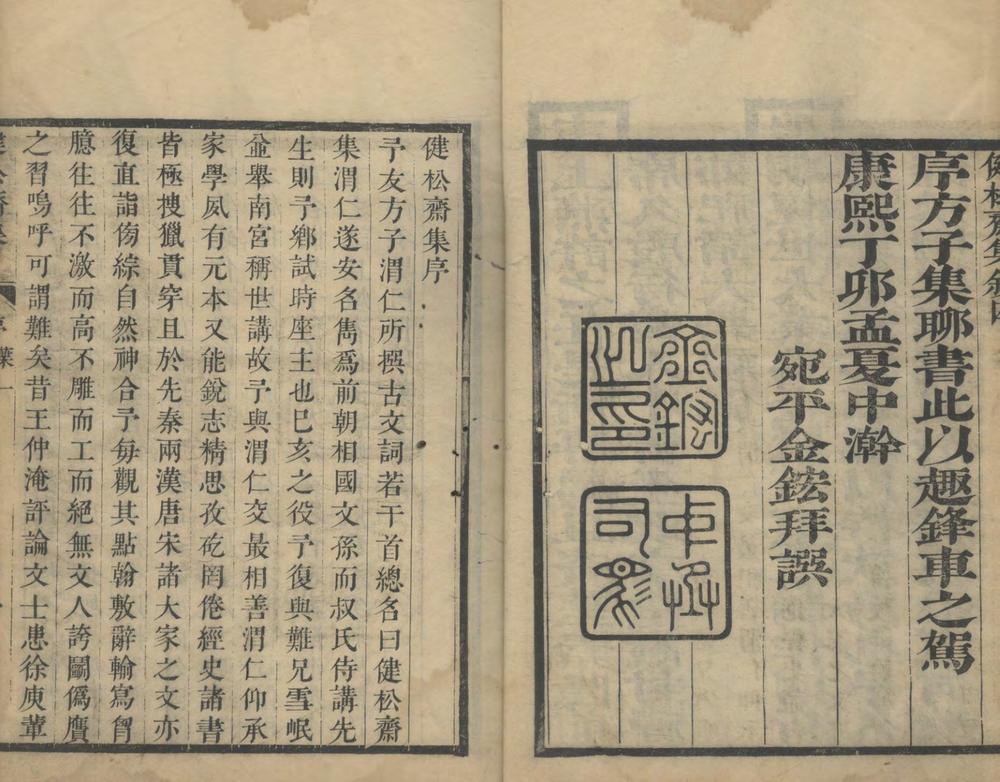 健松齋集敘四
序方子集聊書此以趣鋒車之駕
康熙丁卯孟夏中澣
宛平金鋐拜譔
金鋐之印
健松齋集序
予友方子渭仁所撰古文詞若干首總名曰健松齋
集渭仁遂安名雋爲前朝相國文孫而叔氏侍講先
生則予鄉試時座主也巳亥之役予復與難兄雪岷
㒰舉南宮稱世講故予與渭仁交最相善渭仁仰承
家學夙有元本又能銳志精思孜矻罔倦經史諸書
皆極搜獵貫穿且於先秦兩漢唐宋諸大家之文亦
復直詣傍綜自然神合予每觀其點翰敷辭輸寫胷
臆往往不激而高不雕而工而絕無文人誇鬭僞贗
之習嗚呼可謂難矣昔王仲淹評論文士患徐庾輩
健松齋集
序
葉一